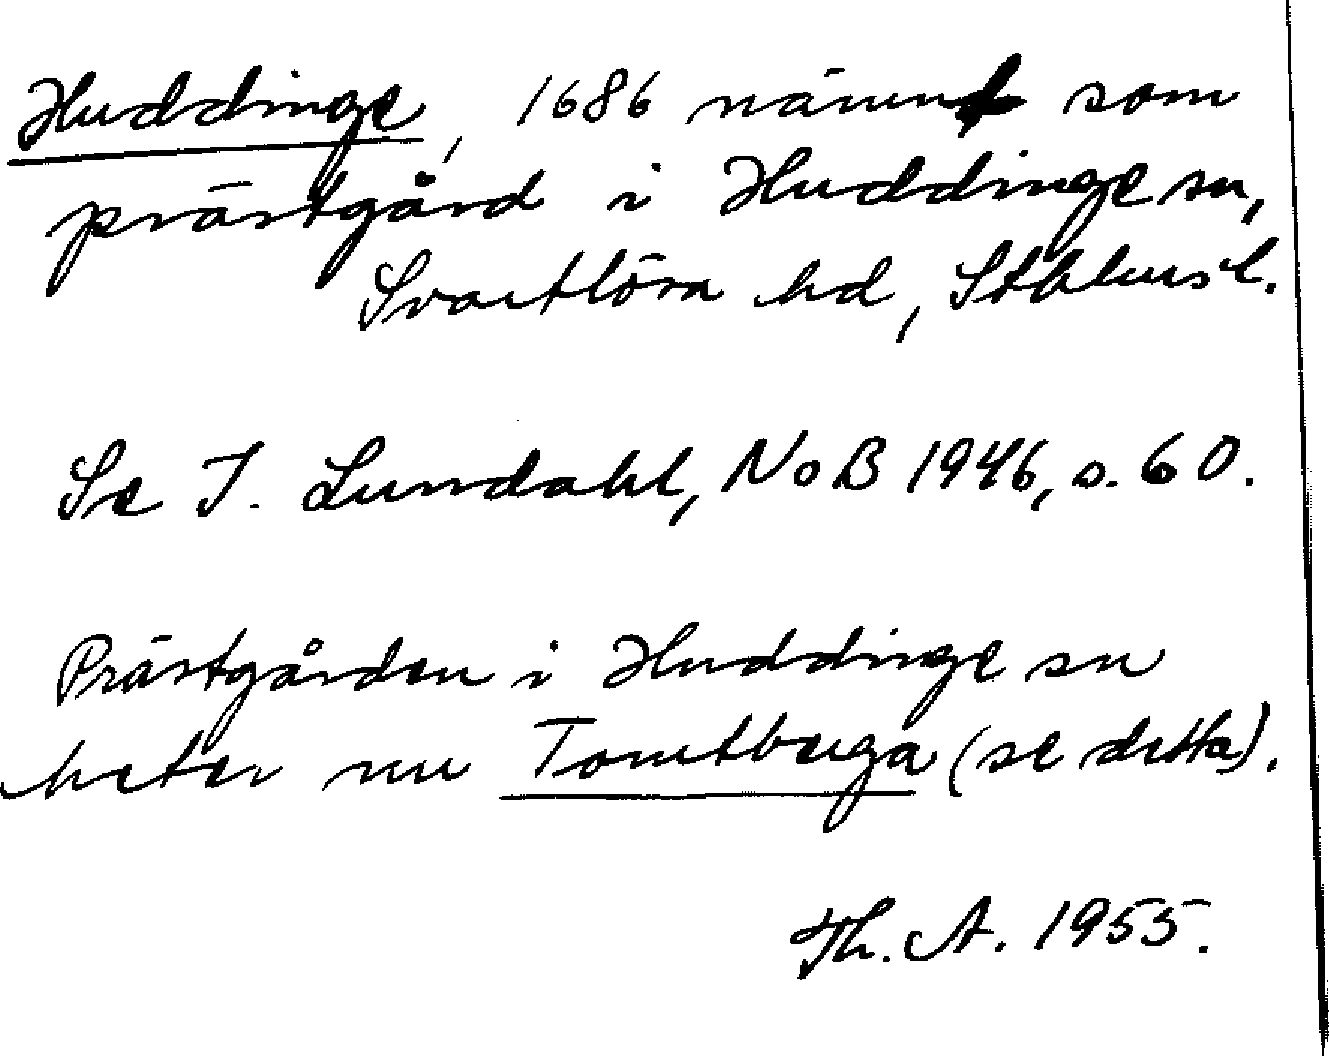 Huddinge, 1686 nämnt som
prästgård i Huddinge sn,
Svartlösa hd, Sthlms l.
Se I. Lundahl, NoB 1946, s. 60.
Prästgården i Huddinge sn
heter nu Tomtberga (se detta).
Th. A. 1955.